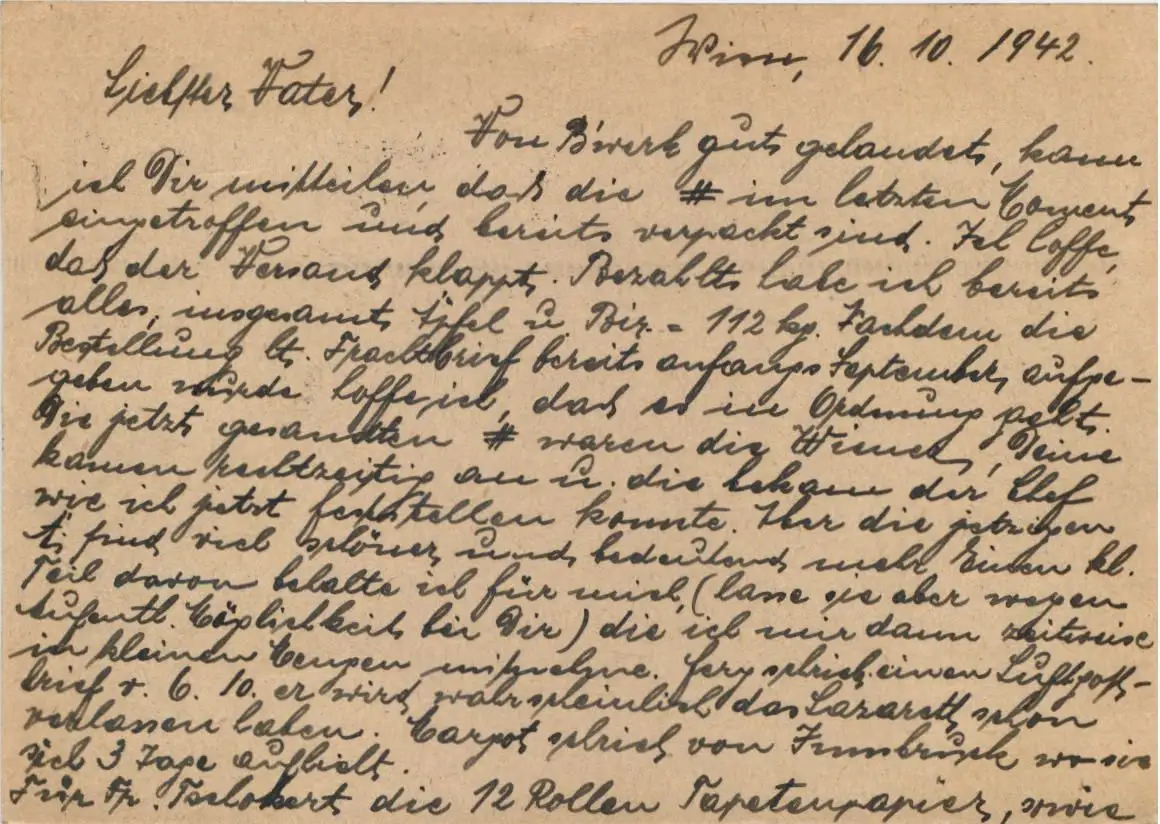 Wien, 16. 10. 1942.
Liebster Vater!
Von B'werk gut gelandet, kann
ich Dir mitteilen, daß die # im letzten Moment
eingetroffen und bereits verpackt sind. Ich hoffe,
daß der Versand klappt. Bezahlt habe ich bereits
alles, insgesamt Äpfel u. Bir. = 112 kg. Nachdem die
Bestellung lt. Frachtbrief bereits anfangs September aufge-
geben wurde hoffe ich, daß es in Ordnung geht.
Die jetzt gesandten # waren die Wiener, Deine
kamen rechtzeitig an u. die bekam der Chef
wie ich jetzt feststellen konnte. Aber die jetzigen
Ä. sind viel schöner und bedeutend mehr. Einen kl.
Teil davon behalte ich für mich, (lasse sie aber wegen
Aufentl. Möglichkeit bei Dir) die ich mir dann zeitweise
in kleinen Mengen mitnehme. schrieb einen Luftpost-
brief v. 6. 10. er wird wahrscheinlich das Lazarett schon
verlassen haben. Margot schrieb von Innsbruck wo sie
sich 3 Tage aufhielt.
Für Fr. die 12 Rollen Tapetenpapier, sowie